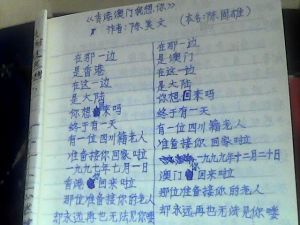 《香港澳门我想你》
作者:陈美文 (本名:陈国雄)
在那一边
是香港
在这一边
是大陆
你想回来吗
终于有一天
有一位四川籍老人
准备接你回家啦
一九九七年七月一日
香港回来啦
那位准备接你的老人
却永远再也无法见你喽
在那一边
是澳门
在这一边
是大陆
你想回来吗
终于有一天
有一位四川籍老人
准备接你回家啦
一九九九年十二月二十日
澳门回来啦
那位准备接你的老人
却永远再也无法见你喽